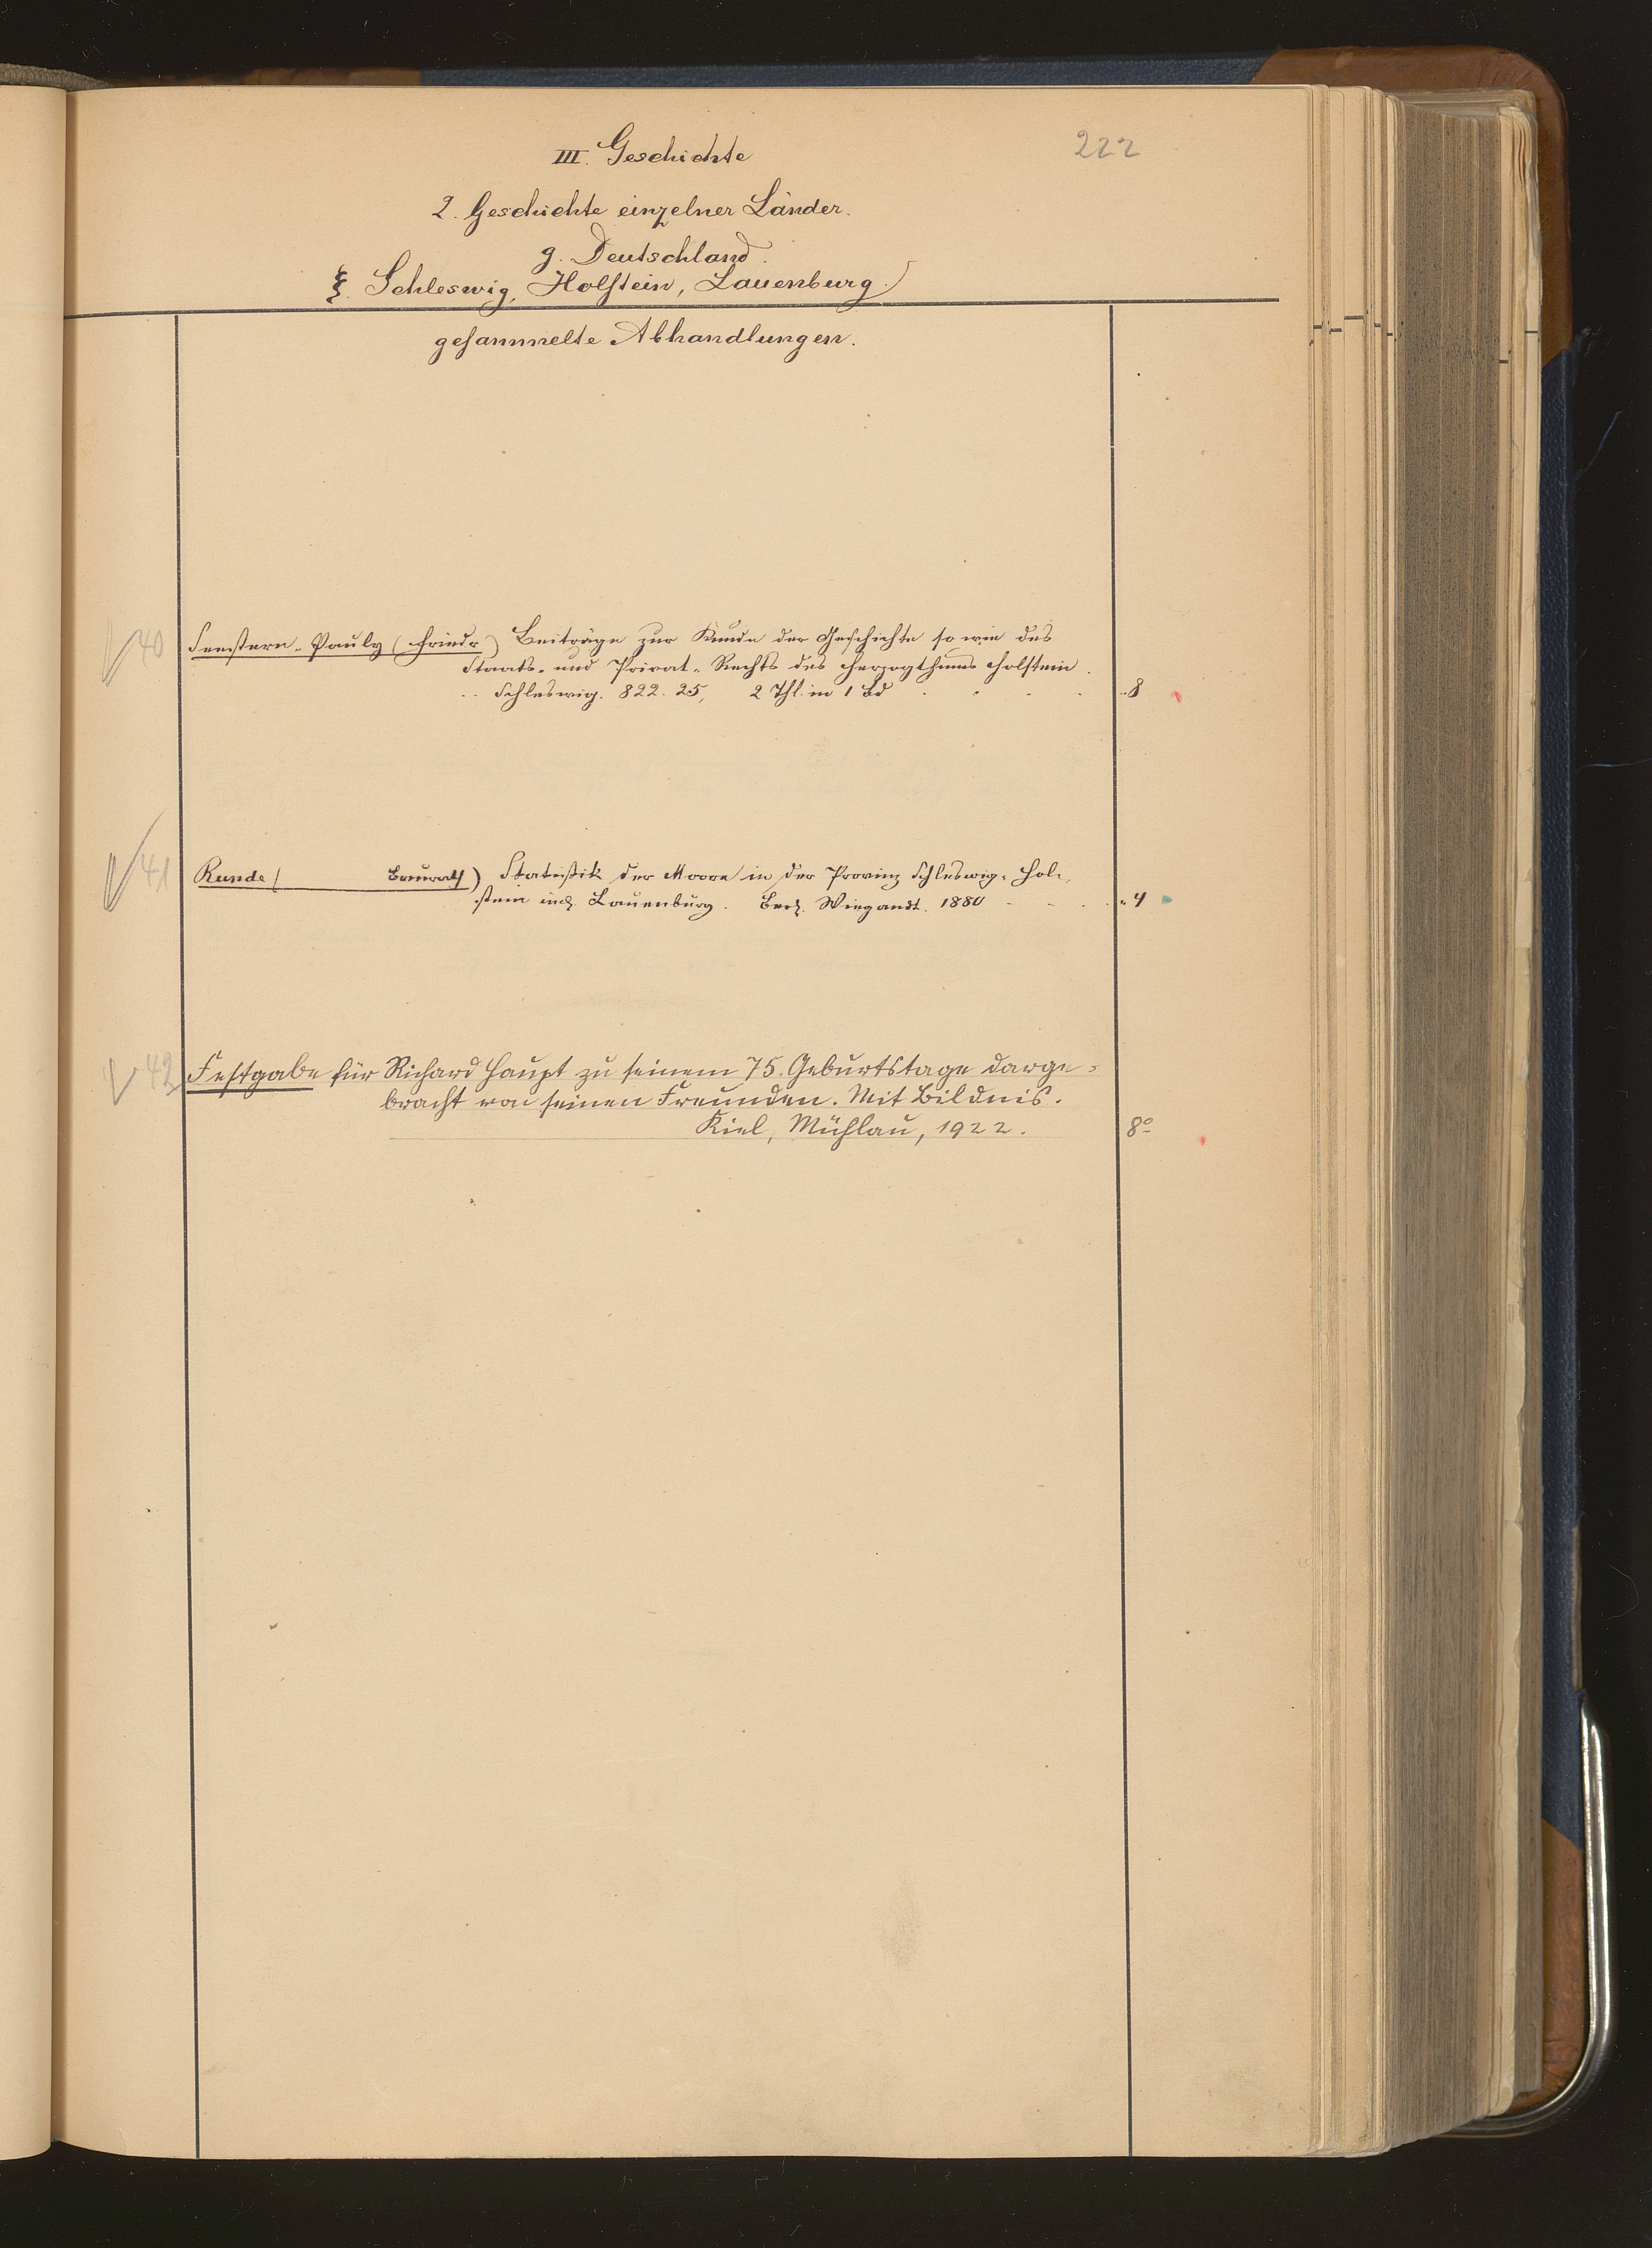 222
III. Geschichte
2. Geschichte einzelner Länder.
g. Deutschland.
ξ. Schleswig, Holstein, Lauenburg.
gesammelte Abhandlungen.
40 Seestern-Pauly (Friedr) Beiträge zur Kunde der Geschichte so wie des
Staats- und Privat-Rechts des Herzogthums Holstein.
Schleswig. 822. 25, 2 Thl. in 1 Bd 8
41 Runde ( Baurath) Statistik der Moore in der Provinz Schleswig-Hol-
stein incl. Lauenburg. Berl. Wiegandt. 1880 4
42 Festgabe für Richard Haupt zu seinem 75. Geburtstage darge-
bracht von seinen Freunden. Mit Bildnis.
Kiel, Mühlau, 1922. 8°